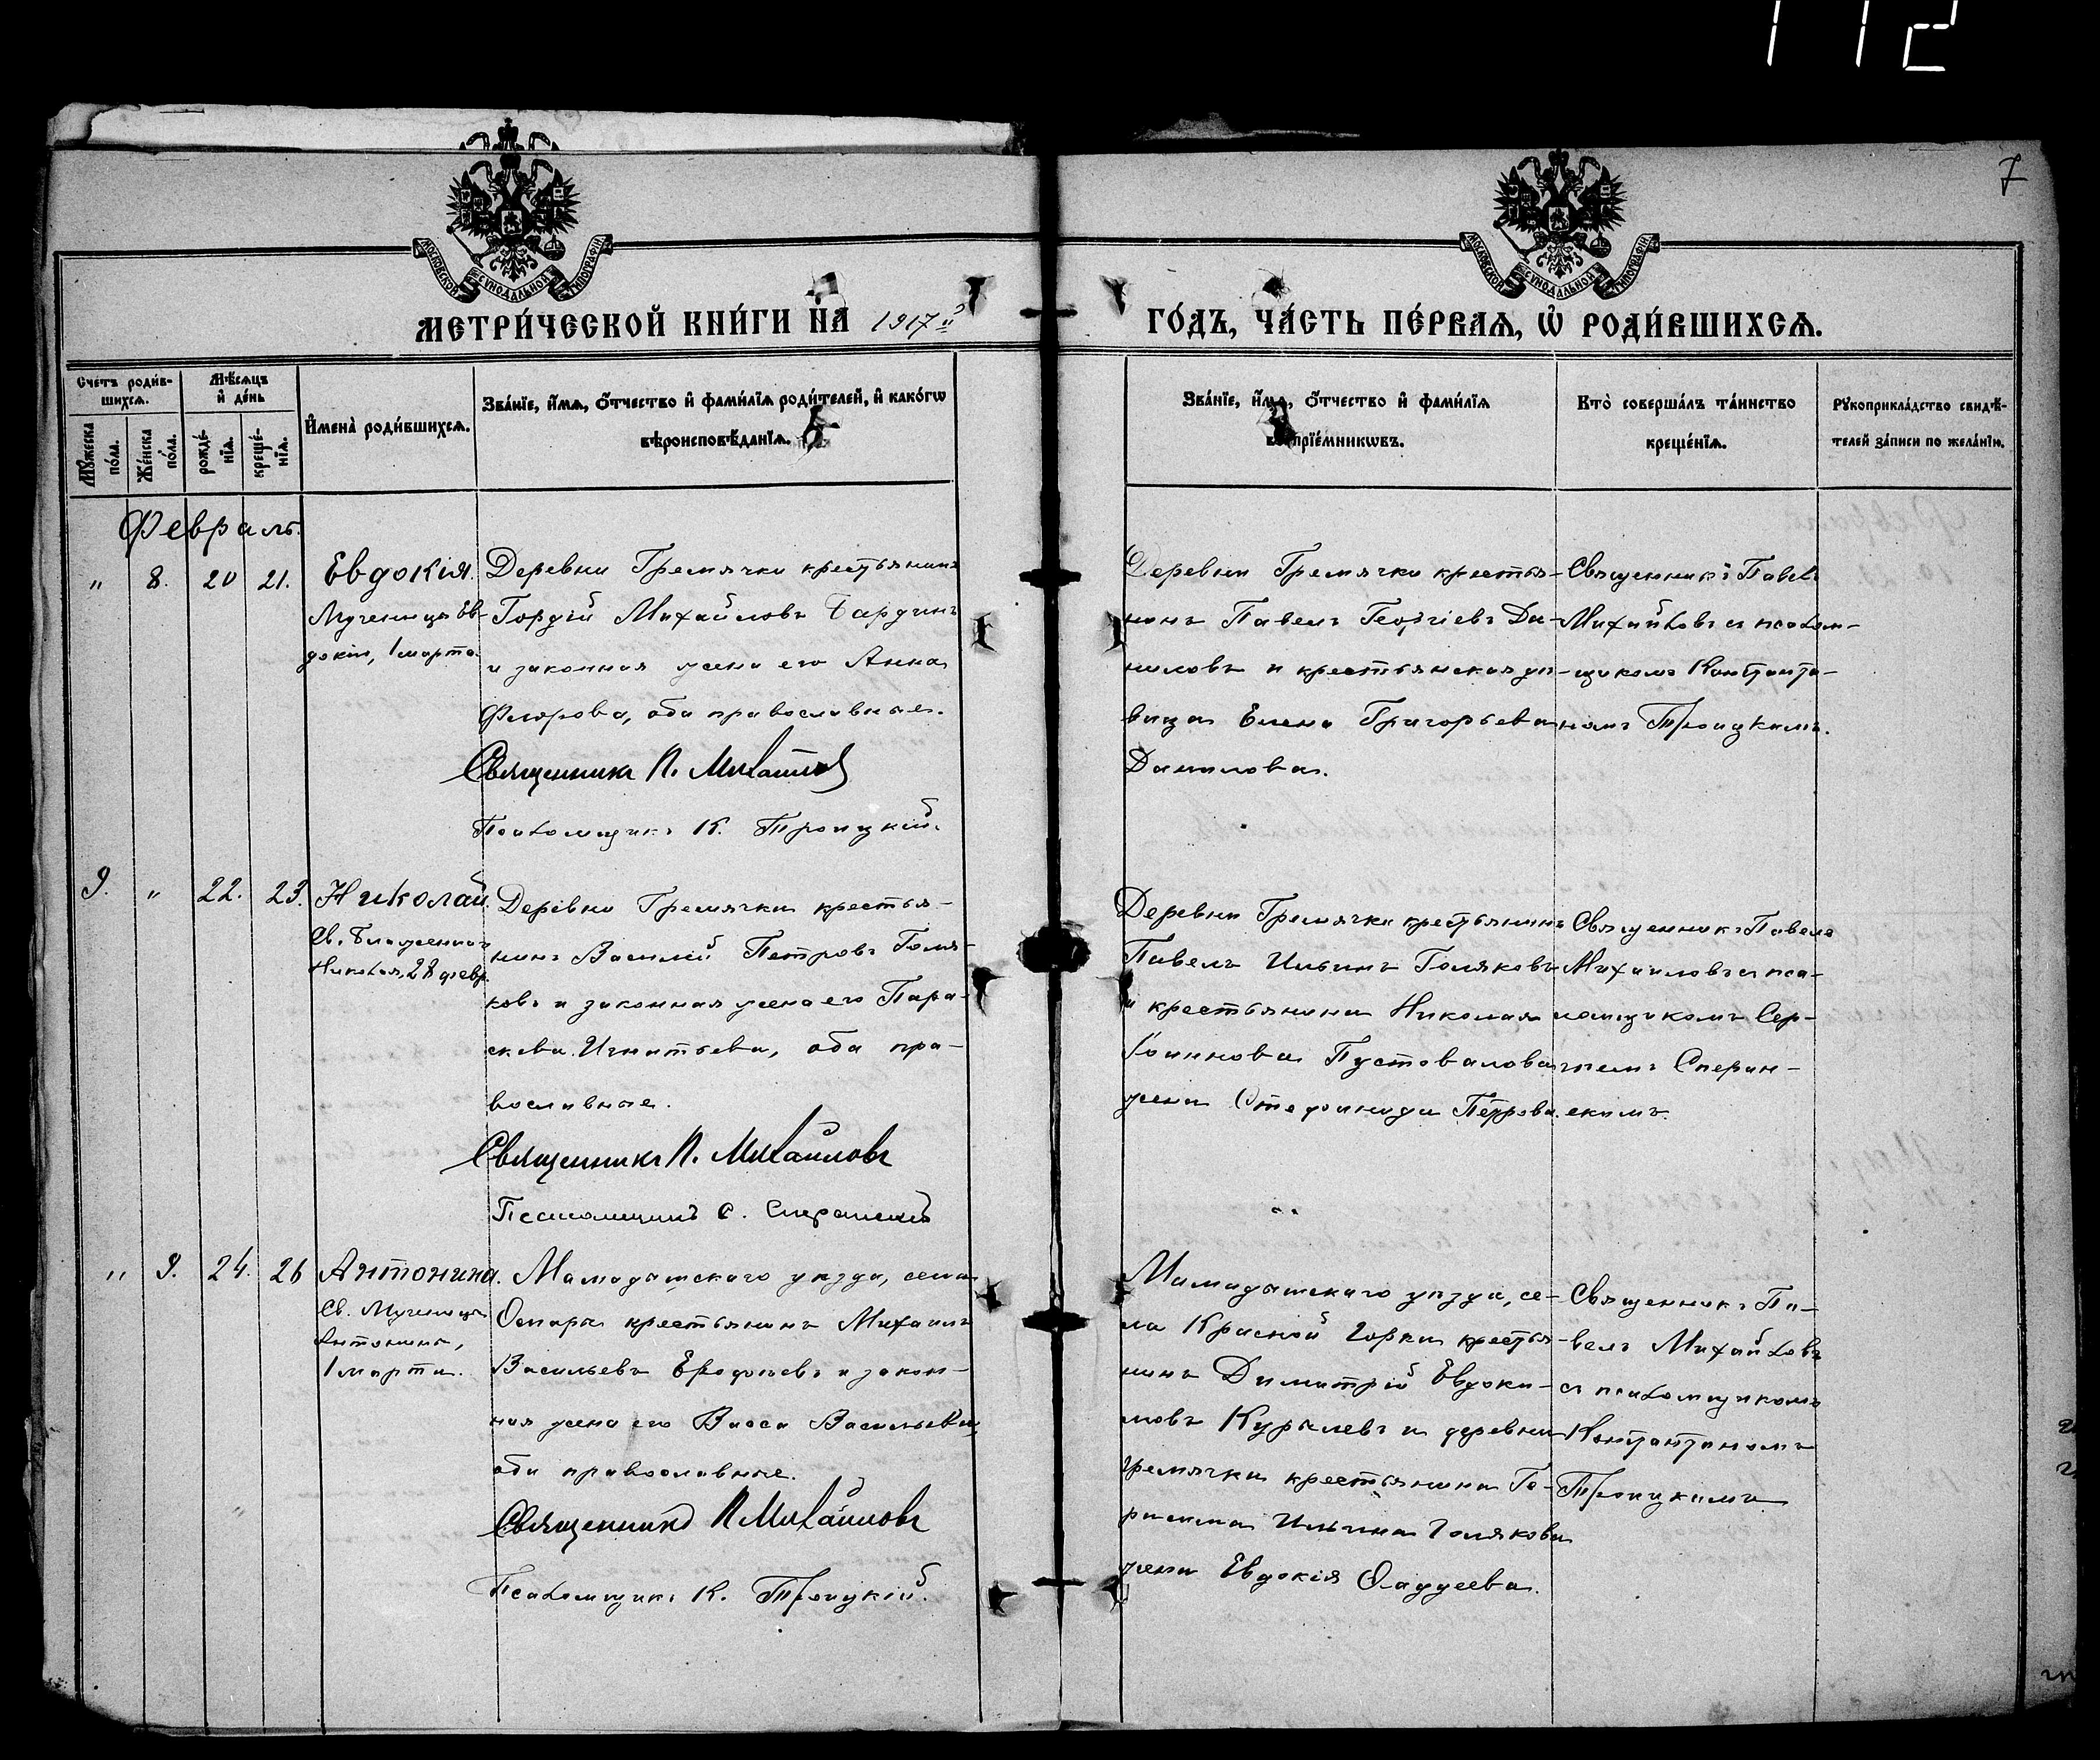 112
7
МОСКОВСКОЙ СѴНОДАЛЬНОЙ ТИПОГРАФІИ
МОСКОВСКОЙ СѴНОДАЛЬНОЙ ТИПОГРАФІИ
МЕТРИ́ЧЕСКОЙ КНИ́ГИ НА 1917й ГО́ДЪ, ЧА́СТЬ ПЕ́РВАѦ, Ѡ҆ РОДИ́ВШИХСѦ.
Счетъ роди́в-
шихсѧ.
Мѣ́сѧцъ
и҆ де́нь
Мꙋ́жеска
по́ла.
Же́нска
по́ла.
рожде́-
нїѧ.
креще́-
нїѧ.
И҆мена̀ роди́вшихсѧ.
Зва́нїе, и҆́мѧ, ѻ҆́тчество и҆ фами́лїѧ роди́телей, и҆ како́гѡ
вѣроисповѣ́данїѧ.
Зва́нїе, и҆́мѧ, ѻ҆́тчество и҆ фами́лїѧ
воспрїе́мникѡвъ.
Кто̀ соверша́лъ та́инство
креще́нїѧ.
Рꙋкоприкла́дство свидѣ́-
телей за́писи по жела́нїю.
Февраль.
" 8. 20 21.
Евдокія.
Мученицы Ев-
докіи, 1 марта.
Деревни Гремячки крестьянинъ
Гордій Михайловъ Бардинъ
и законная жена его Анна
Флорова, оба православные.
Священникъ П. Михайловъ
Псаломщикъ К. Троицкій.
Деревни Гремячки крестья-
нинъ Павелъ Георгіевъ Да-
ниловъ и крестьянская дѣ-
вица Елена Григорьева
Данилова.
Священникъ Павелъ
Михайловъ съ псалом-
щикомъ Константи-
номъ Троицкимъ.
9. " 22. 23.
Николай.
Св. Блаженнаго
Николая, 28 февр.
Деревни Гремячки крестья-
нинъ Василій Петровъ Голя-
ковъ и законная жена его Пара-
скева Игнатьева, оба пра-
вославные.
Священникъ П. Михайловъ
Псаломщикъ С. Сперанскій
Деревни Гремячки крестьянинъ
Павелъ Ильинъ Голяковъ
и крестьянина Николая
Іоаннова Пустовалова
жена Стефанида Петрова.
Священникъ Павелъ
Михайловъ съ пса-
ломщикомъ Сер-
гіемъ Сперан-
скимъ.
" 9. 24. 26
Антонина.
Св. Мученицы
Антонины,
1 марта.
Мамадышскаго уѣзда, села
Омары крестьянинъ Михаилъ
Васильевъ Ерофѣевъ и закон-
ная жена его Васса Васильева,
оба православные.
Священникъ П Михайловъ
Псаломщикъ К. Троицкій.
Мамадышскаго уѣзда, се-
ла Красной Горки крестья-
нинъ Димитрій Евдоки-
мовъ Курылевъ и деревни
Гремячки крестьянина Ге-
расима Ильина Голякова
жена Евдокія Фаддеева.
Священникъ Па-
велъ Михайловъ
съ псаломщикомъ
Константиномъ
Троицкимъ